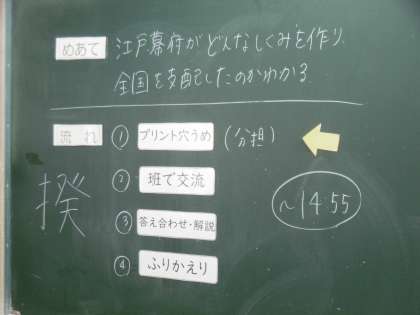 めあて 江戸幕府がどんなしくみを作り、
全国を支配したのかわかる
流れ ① プリント穴うめ (分担)
② 班で交流
揆 ~14:55
③ 答え合わせ・解説
④ ふりかえり